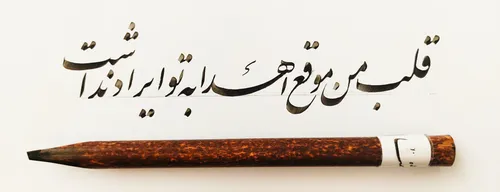 قلب من موقع اهدا به تو ایراد نداشت